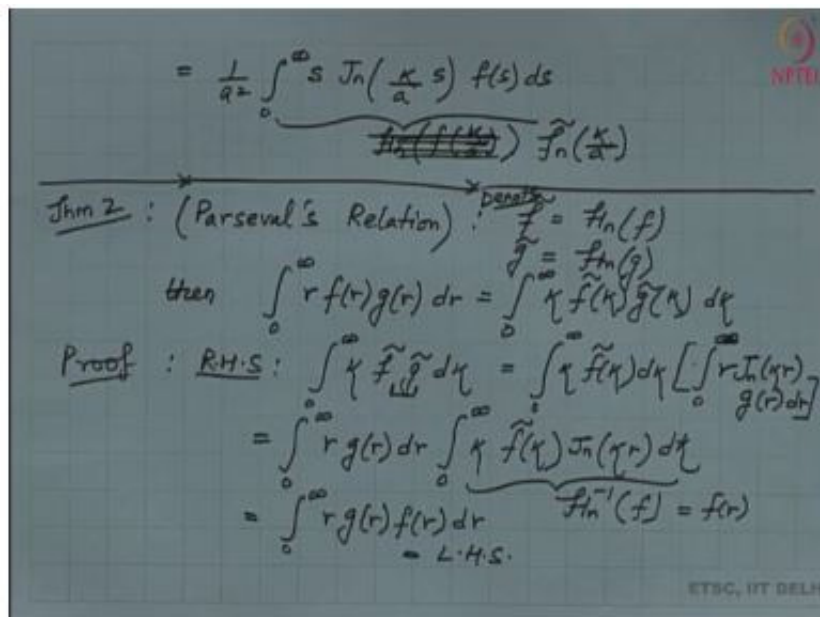 = 1/a² ∫₀^∞ s Jn(κ/a s) f(s) ds
f̃n(κ/a)
NPTEL
Thm 2 : (Parseval's Relation) : Denote f̃ = Hn(f)
g̃ = Hn(g)
then ∫₀^∞ r f(r) g(r) dr = ∫₀^∞ κ f̃(κ) g̃(κ) dκ
Proof : R.H.S : ∫₀^∞ κ f̃ g̃ dκ = ∫₀^∞ κ f̃(κ) dκ [∫₀^∞ r Jn(κr)
g(r) dr]
= ∫₀^∞ r g(r) dr ∫₀^∞ κ f̃(κ) Jn(κr) dκ
Hn⁻¹(f) = f(r)
= ∫₀^∞ r g(r) f(r) dr
= L.H.S.
ETSC, IIT DELH